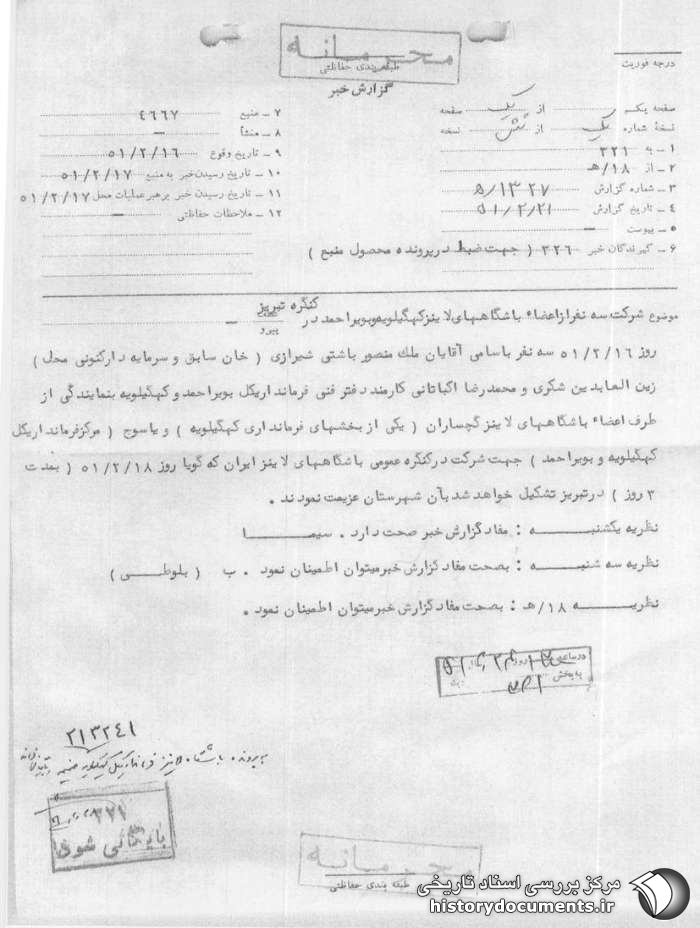 محرمانه
طبقه بندی حفاظتی
گزارش خبر
درجه فوریت
صفحه یک از یک صفحه
نسخهٔ شماره یک از شش نسخه
۱ ـ به ۳۲۱
۲ ـ از ۱۸/هـ
۳ ـ شماره گزارش ۵/۱۳۲۷
۴ ـ تاریخ گزارش ۵۱/۲/۲۱
۵ ـ پیوست ـ
۶ ـ گیرندگان خبر ۳۲۶ ( جهت ضبط در پرونده محصول منبع )
۷ ـ منبع ٤٦٦٧
۸ ـ منشأ ـ
۹ ـ تاریخ وقوع ۵۱/۲/۱۶
۱۰ ـ تاریخ رسیدن خبر به منبع ۵۱/۲/۱۷
۱۱ ـ تاریخ رسیدن خبر برهبر عملیات محل ۵۱/۲/۱۷
۱۲ ـ ملاحظات حفاظتی ـ
موضوع شرکت سه نفر از اعضاء باشگاههای لاینز کهگیلویه و بویراحمد در کنگره تبریز
پیرو ـ
روز ۵۱/۲/۱۶ سه نفر باسامی آقایان ملك منصور باشتی شیرازی ( خان سابق و سرمایه دار کنونی محل )
زین العابدین شکری و محمدرضا اکباتانی کارمند دفتر فنی فرمانداریکل بویراحمد و کهگیلویه بنمایندگی از
طرف اعضاء باشگاههای لاینز گچساران ( یکی از بخشهای فرمانداری کهگیلویه ) و یاسوج ( مرکز فرمانداریکل
کهگیلویه و بویراحمد ) جهت شرکت در کنگره عمومی باشگاههای لاینز ایران که گویا روز ۵۱/۲/۱۸ ( بمدت
۳ روز ) در تبریز تشکیل خواهد شد بآن شهرستان عزیمت نمودند .
نظریه یکشنبه : مفاد گزارش خبر صحت دارد . سیما
نظریه سه شنبه : بصحت مفاد گزارش خبر میتوان اطمینان نمود . ب ( بلوطی )
نظریه ۱۸/هـ : بصحت مفاد گزارش خبر میتوان اطمینان نمود .
در ساعت روز
به بخش
۲۱۳۲٤۱
۳۲۱
بایگانی شود
محرمانه
طبقه بندی حفاظتی
مرکز بررسی اسناد تاریخی
historydocuments.ir